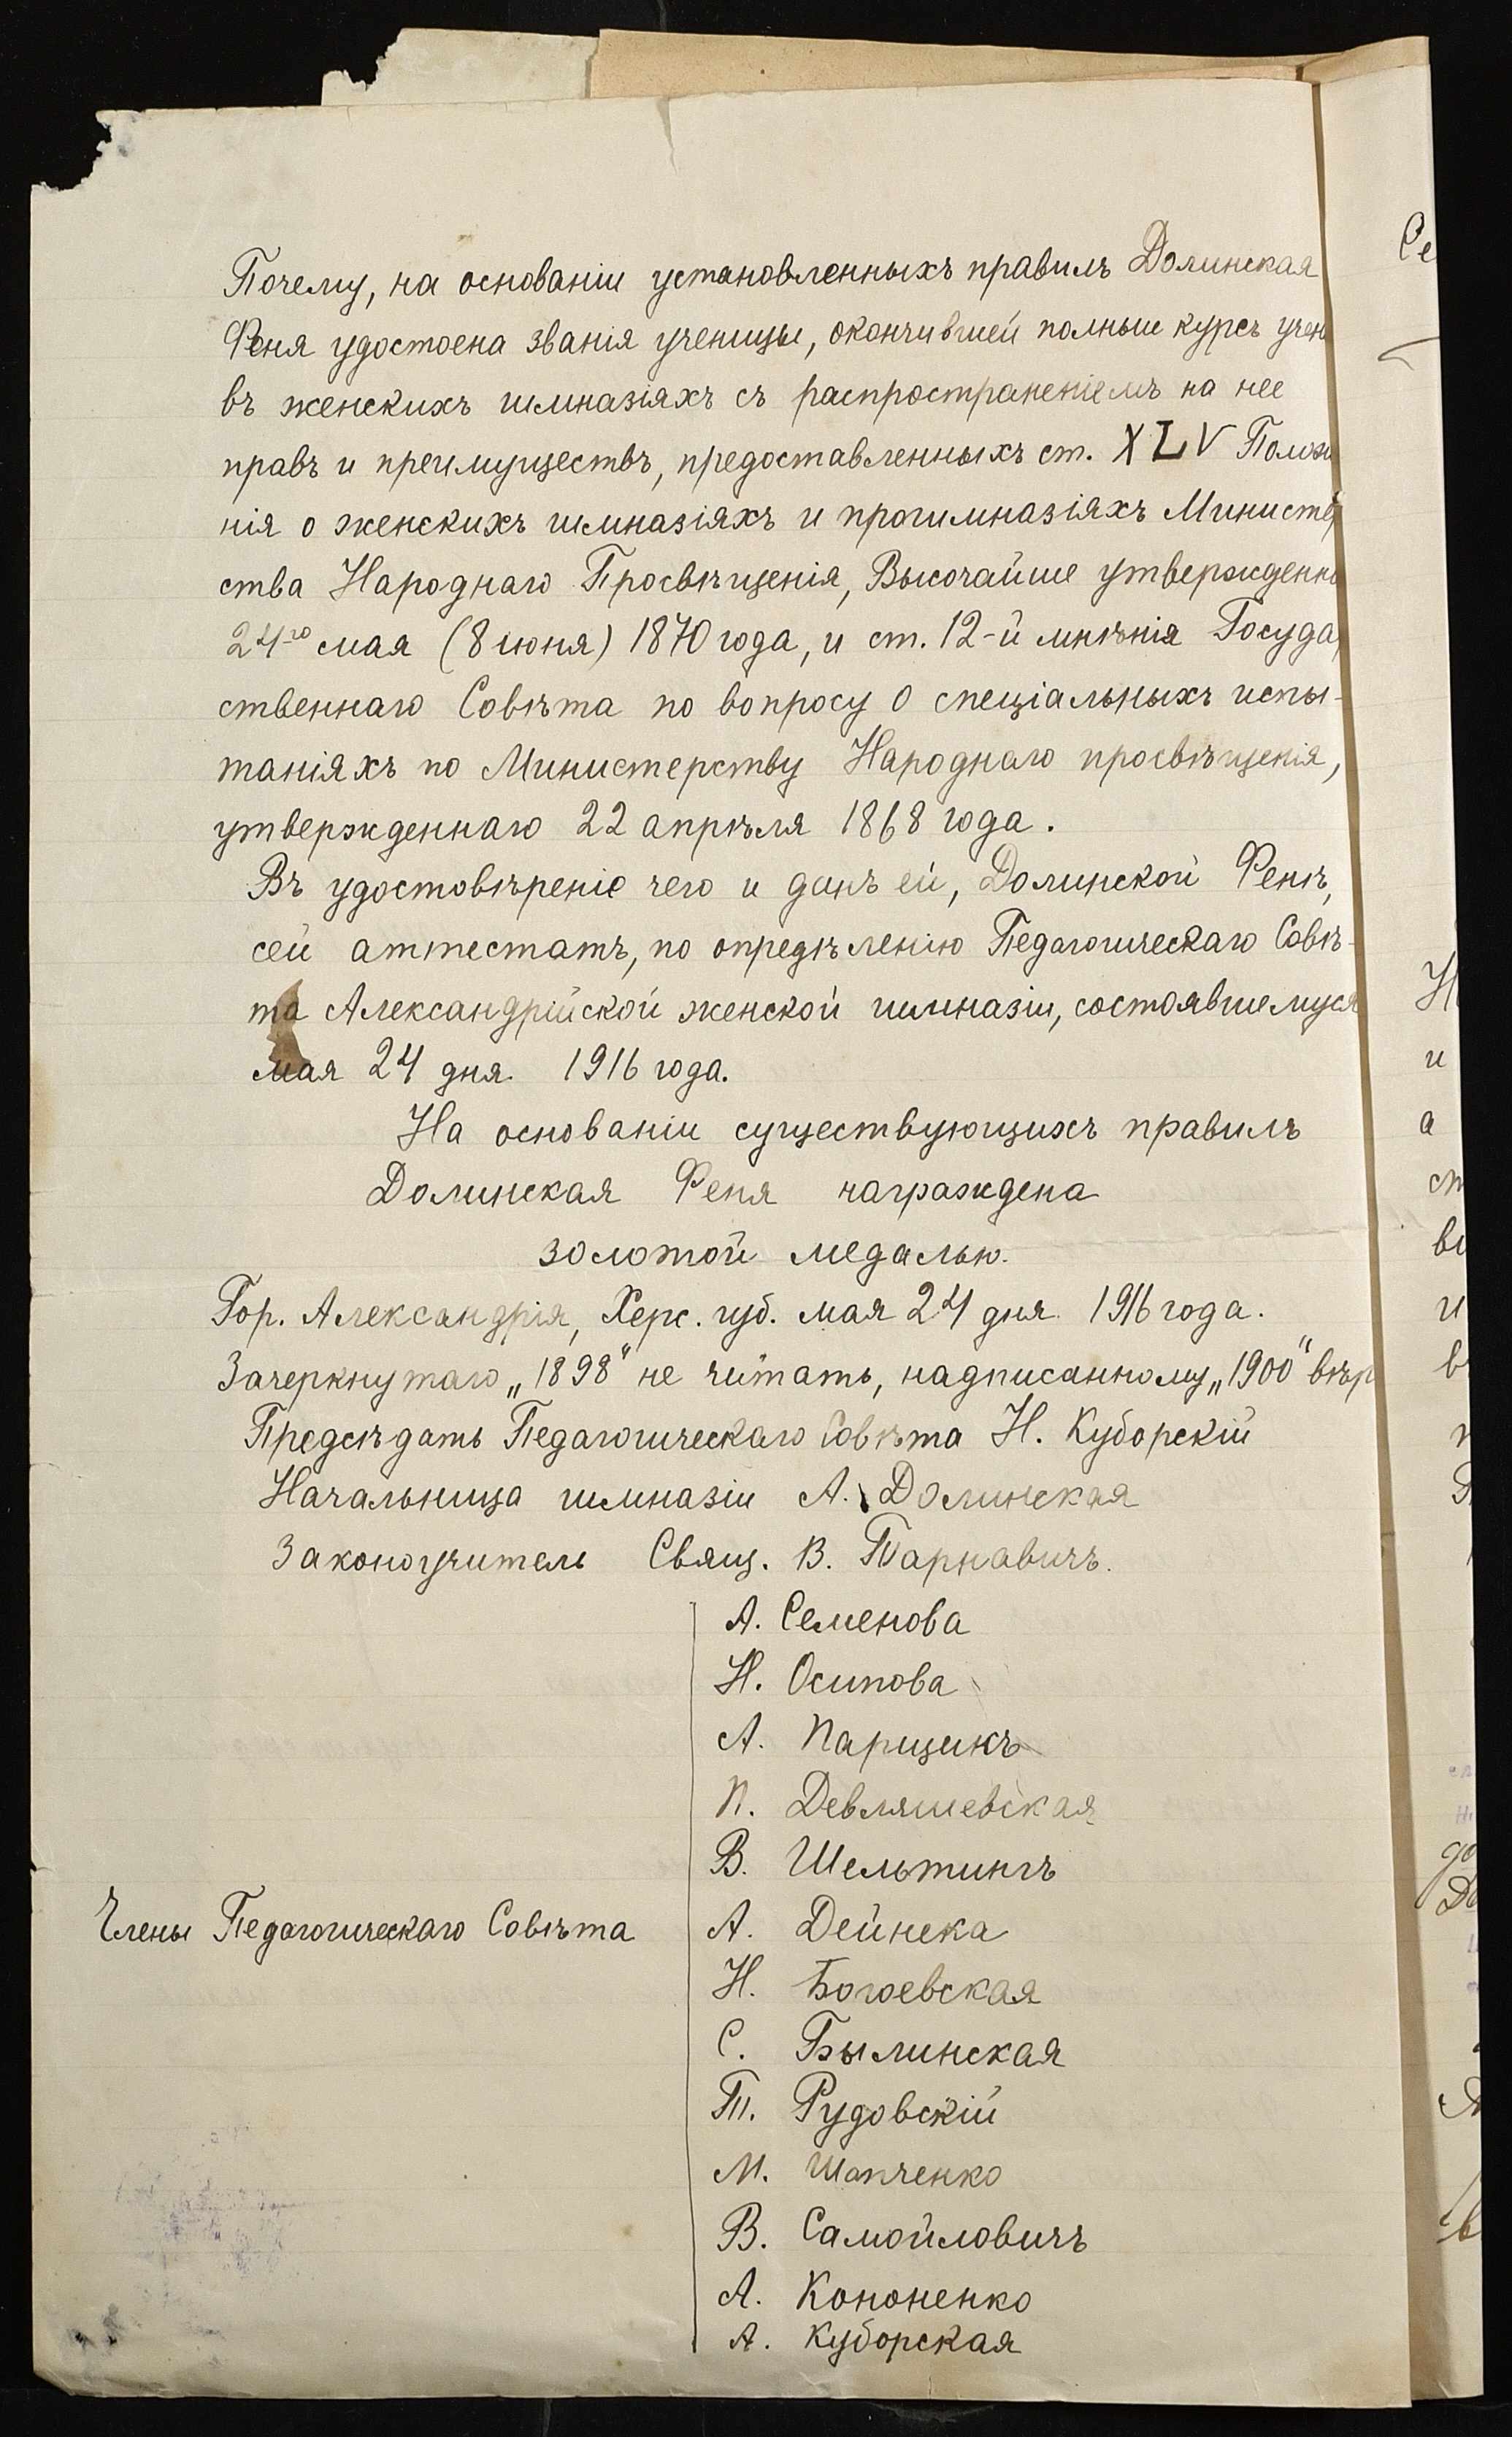 Почему, на основаніи установленныхъ правилъ Долинская
Феня удостоена званія ученицы, окончившей полный курсъ учен
въ женскихъ гимназіяхъ съ распространеніемъ на нее
правъ и преимуществъ, предоставленныхъ ст. XLV Положе
нія о женскихъ гимназіяхъ и прогимназіяхъ Министер
ства Народнаго Просвѣщенія, Высочайше утвержденна
24-го мая (8 іюня) 1870 года, и ст. 12-й мнѣнія Госуда
ственнаго Совѣта по вопросу о спеціальныхъ испы-
таніяхъ по Министерству Народнаго просвѣщенія,
утвержденнаго 22 апрѣля 1868 года.
Въ удостовѣреніе чего и данъ ей, Долинской Фенѣ,
сей аттестатъ, по опредѣленію Педагогическаго Совѣ-
та Александрійской женской гимназіи, состоявшемуся
мая 24 дня 1916 года.
На основаніи существующихъ правилъ
Долинская Феня награждена
золотой медалью.
Гор. Александрія, Херс. губ. мая 24 дня 1916 года.
Зачеркнутаго „1898" не читать, надписанному „1900" вѣр
Предсѣдатъ Педагогическаго Совѣта Н. Куборскій
Начальница гимназіи А. Долинская
Законоучитель Свящ. В. Тарнавичъ.
А. Семенова
Н. Осипова
А. Парщикъ
П. Девляшевская
В. Шельтингъ
Члены Педагогическаго Совѣта А. Дейнека
Н. Богоевская
С. Былинская
Т. Рудовскій
М. Шапченко
В. Самойловичъ
А. Кононенко
А. Куборская